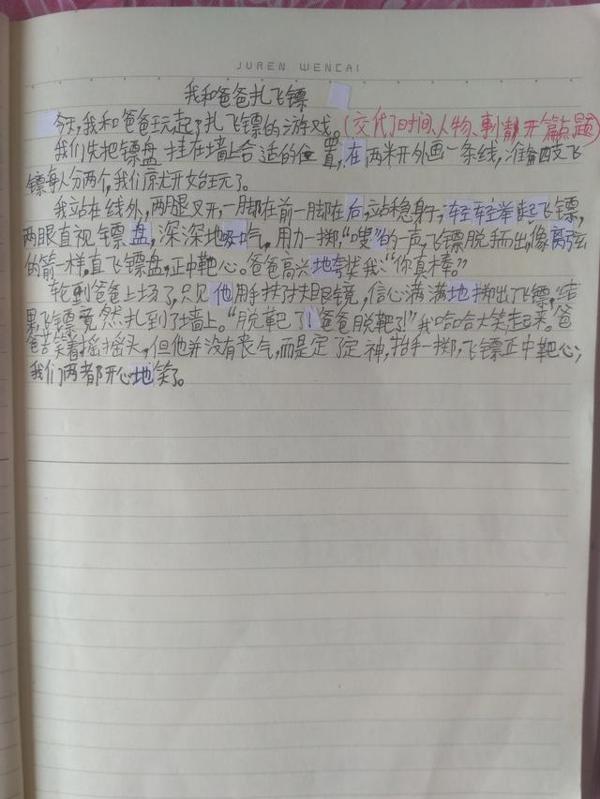 JUREN WENCAI
我和爸爸扎飞镖
今天,我和爸爸玩起了扎飞镖的游戏。(交代了时间、人物、事情,开篇点题)
我们先把镖盘挂在墙上合适的位置,在两米开外画一条线,准备四支飞
镖每人分两个,我们就开始玩了。
我站在线外,两腿叉开,一脚在前一脚在后,站稳身子,轻轻举起飞镖,
两眼直视镖盘,深深地吸口气,用力一掷,“嗖”的一声,飞镖脱手而出,像离弦
的箭一样,直飞镖盘,正中靶心。爸爸高兴地夸奖我:“你真棒。”
轮到爸爸上场了,只见他用手扶了扶眼镜,信心满满地掷出了飞镖,结
果,飞镖竟然扎到了墙上。“脱靶了!爸爸脱靶了!”我哈哈大笑起来。爸
爸苦笑着摇摇头,但他并没有丧气,而是定了定神,抬手一掷,飞镖正中靶心,
我们两都开心地笑了。